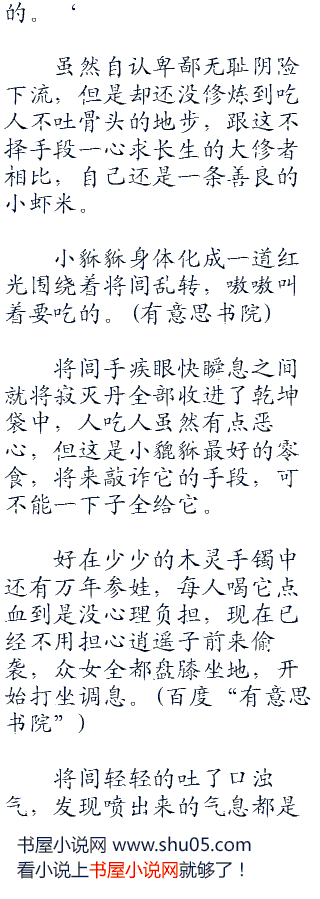 的。‘
虽然自认卑鄙无耻阴险
下流，但是却还没修炼到吃
人不吐骨头的地步，跟这不
择手段一心求长生的大修者
相比，自己还是一条善良的
小虾米。
小貅貅身体化成一道红
光围绕着将闾乱转，嗷嗷叫
着要吃的。(有意思书院)
将闾手疾眼快瞬息之间
就将寂灭丹全部收进了乾坤
袋中，人吃人虽然有点恶
心，但这是小貔貅最好的零
食，将来敲诈它的手段，可
不能一下子全给它。
好在少少的木灵手镯中
还有万年参娃，每人喝它点
血到是没心理负担，现在已
经不用担心逍遥子前来偷
袭，众女全都盘膝坐地，开
始打坐调息。(百度“有意思
书院”)
将闾轻轻的吐了口浊
气，发现喷出来的气息都是
书屋小说网 www.shu05.com
看小说上书屋小说网就够了！